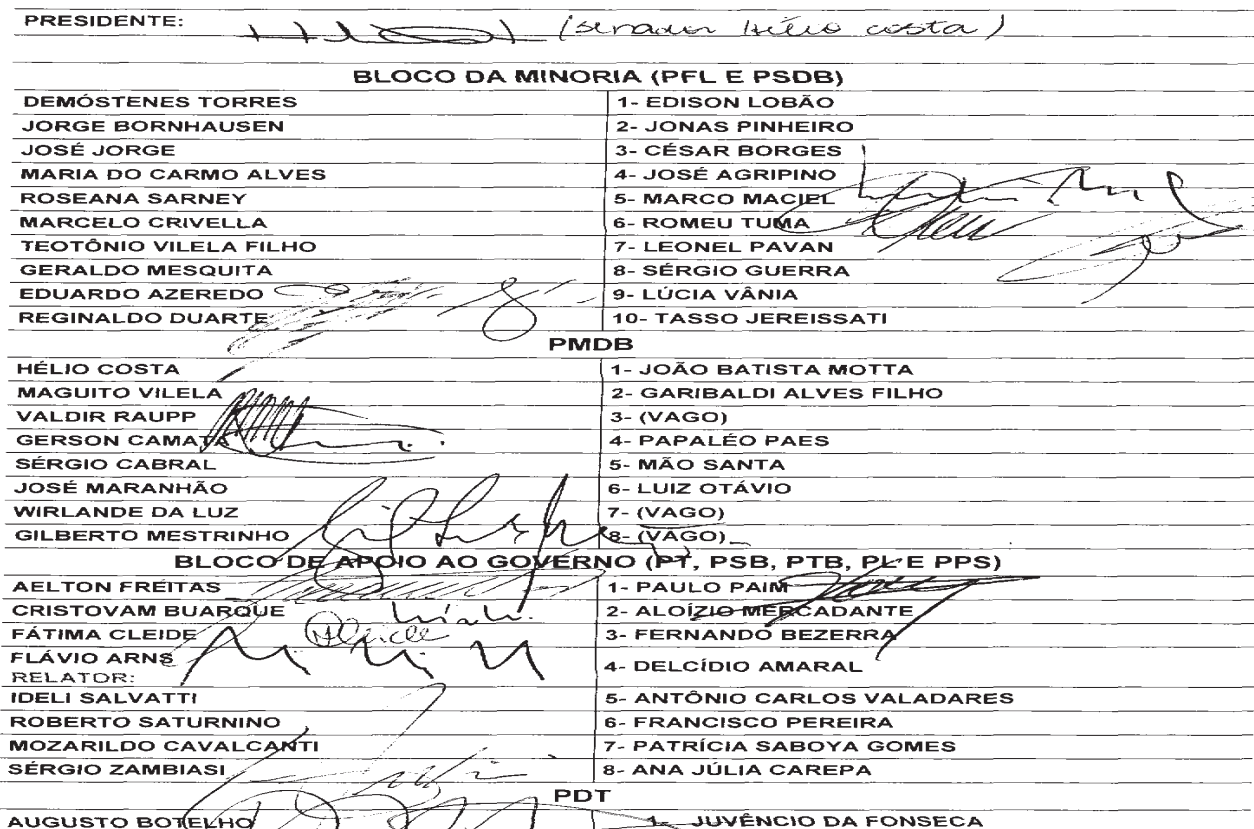 PRESIDENTE: (senador Hélio costa)
BLOCO DA MINORIA (PFL E PSDB)
DEMÓSTENES TORRES 1- EDISON LOBÃO
JORGE BORNHAUSEN 2- JONAS PINHEIRO
JOSÉ JORGE 3- CÉSAR BORGES
MARIA DO CARMO ALVES 4- JOSÉ AGRIPINO
ROSEANA SARNEY 5- MARCO MACIEL
MARCELO CRIVELLA 6- ROMEU TUMA
TEOTÔNIO VILELA FILHO 7- LEONEL PAVAN
GERALDO MESQUITA 8- SÉRGIO GUERRA
EDUARDO AZEREDO 9- LÚCIA VÂNIA
REGINALDO DUARTE 10- TASSO JEREISSATI
PMDB
HÉLIO COSTA 1- JOÃO BATISTA MOTTA
MAGUITO VILELA 2- GARIBALDI ALVES FILHO
VALDIR RAUPP 3- (VAGO)
GERSON CAMATA 4- PAPALÉO PAES
SÉRGIO CABRAL 5- MÃO SANTA
JOSÉ MARANHÃO 6- LUIZ OTÁVIO
WIRLANDE DA LUZ 7- (VAGO)
GILBERTO MESTRINHO 8- (VAGO)
BLOCO DE APOIO AO GOVERNO (PT, PSB, PTB, PL E PPS)
AELTON FREITAS 1- PAULO PAIM
CRISTOVAM BUARQUE 2- ALOÍZIO MERCADANTE
FÁTIMA CLEIDE 3- FERNANDO BEZERRA
FLÁVIO ARNS 4- DELCÍDIO AMARAL
RELATOR:
IDELI SALVATTI 5- ANTÔNIO CARLOS VALADARES
ROBERTO SATURNINO 6- FRANCISCO PEREIRA
MOZARILDO CAVALCANTI 7- PATRÍCIA SABOYA GOMES
SÉRGIO ZAMBIASI 8- ANA JÚLIA CAREPA
PDT
AUGUSTO BOTELHO 1- JUVÊNCIO DA FONSECA